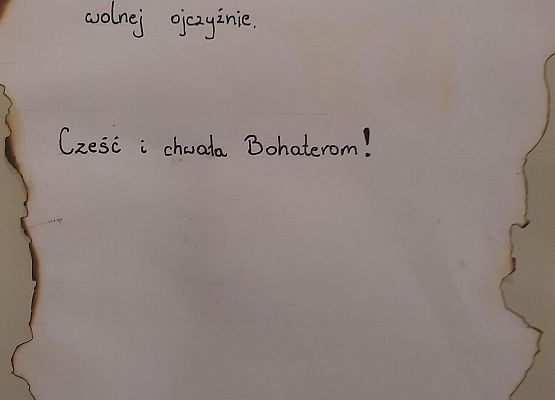 wolnej ojczyźnie.
Cześć i chwała Bohaterom!